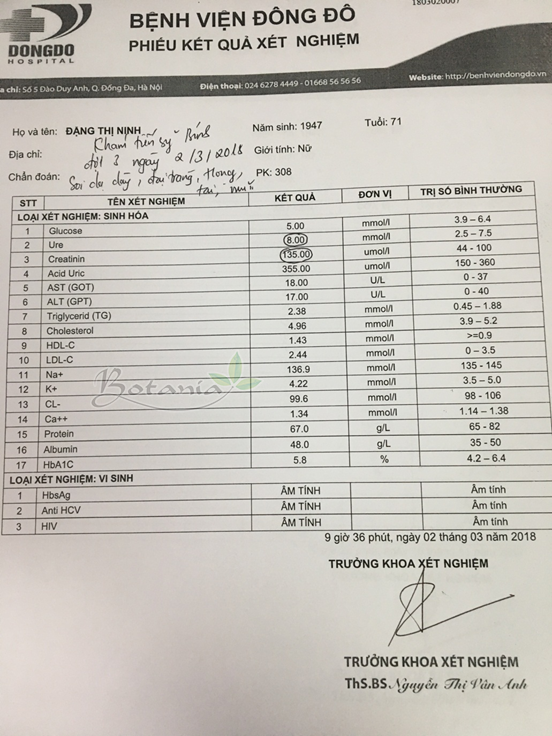 1803020007
DONGDO
HOSPITAL
BỆNH VIỆN ĐÔNG ĐÔ
PHIẾU KẾT QUẢ XÉT NGHIỆM
a chỉ: Số 5 Đào Duy Anh, Q. Đống Đa, Hà Nội Điện thoại: 024 6278 4449 - 01668 56 56 56 Website: http://benhviendongdo.vn
Họ và tên: ĐẶNG THỊ NỊNH Năm sinh: 1947 Tuổi: 71
Khám tiến sỹ Bính
Địa chỉ: đợt 3 ngày 2/3/2018 Giới tính: Nữ
Chẩn đoán: Soi dạ dày, đại tràng, Họng, PK: 308
tai, mũi
STT TÊN XÉT NGHIỆM KẾT QUẢ ĐƠN VỊ TRỊ SỐ BÌNH THƯỜNG
LOẠI XÉT NGHIỆM: SINH HÓA
1 Glucose 5.00 mmol/l 3.9 – 6.4
2 Ure 8.00 mmol/l 2.5 – 7.5
3 Creatinin 135.00 umol/l 44 - 100
4 Acid Uric 355.00 umol/l 150 - 360
5 AST (GOT) 18.00 U/L 0 - 37
6 ALT (GPT) 17.00 U/L 0 - 40
7 Triglycerid (TG) 2.38 mmol/l 0.45 – 1.88
8 Cholesterol 4.96 mmol/l 3.9 – 5.2
9 HDL-C 1.43 mmol/l >=0.9
10 LDL-C 2.44 mmol/l 0 – 3.5
11 Na+ 136.9 mmol/l 135 - 145
12 K+ 4.22 mmol/l 3.5 – 5.0
13 CL- 99.6 mmol/l 98 - 106
14 Ca++ 1.34 mmol/l 1.14 – 1.38
15 Protein 67.0 g/L 65 - 82
16 Albumin 48.0 g/L 35 - 50
17 HbA1C 5.8 % 4.2 – 6.4
Botania
LOẠI XÉT NGHIỆM: VI SINH
1 HbsAg ÂM TÍNH Âm tính
2 Anti HCV ÂM TÍNH Âm tính
3 HIV ÂM TÍNH Âm tính
9 giờ 36 phút, ngày 02 tháng 03 năm 2018
TRƯỞNG KHOA XÉT NGHIỆM
TRƯỞNG KHOA XÉT NGHIỆM
ThS.BS Nguyễn Thị Vân Anh